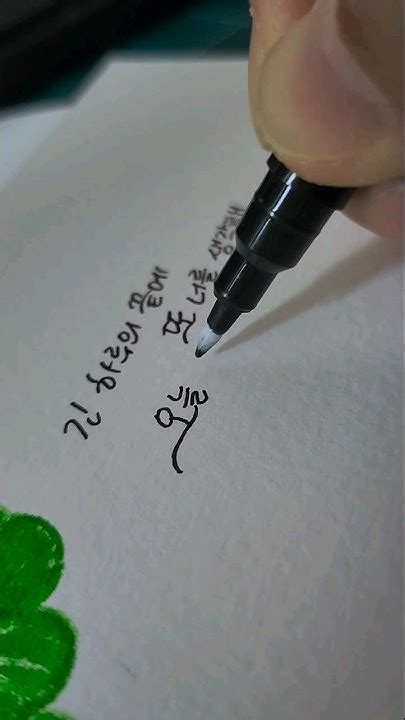 긴 하루의 끝에
또 너를 생각해
오늘